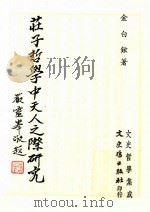 金白鉉著
文史哲學集成
文史哲出版社印行
莊子哲學中天人之際研究
嚴靈峯敬題